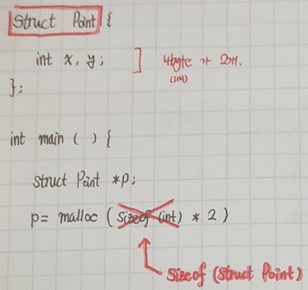 Struct Point {
int x, y; ] 4byte가 2개.
(int)
};
int main ( ) {
Struct Point *p;
p= malloc ( Sizeof (int) * 2 )
Sizeof (Struct Point)